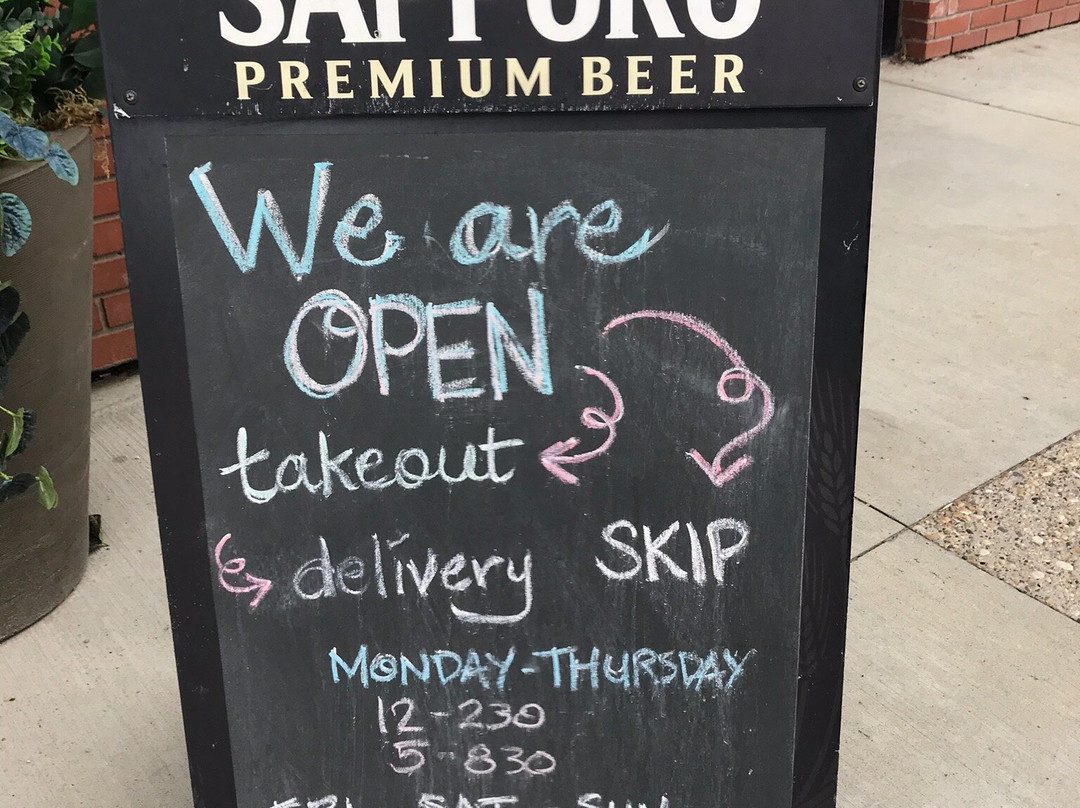 SAPPORO
PREMIUM BEER
We are
OPEN
takeout
delivery SKIP
MONDAY-THURSDAY
12-230
5-830
FRI SAT SUN